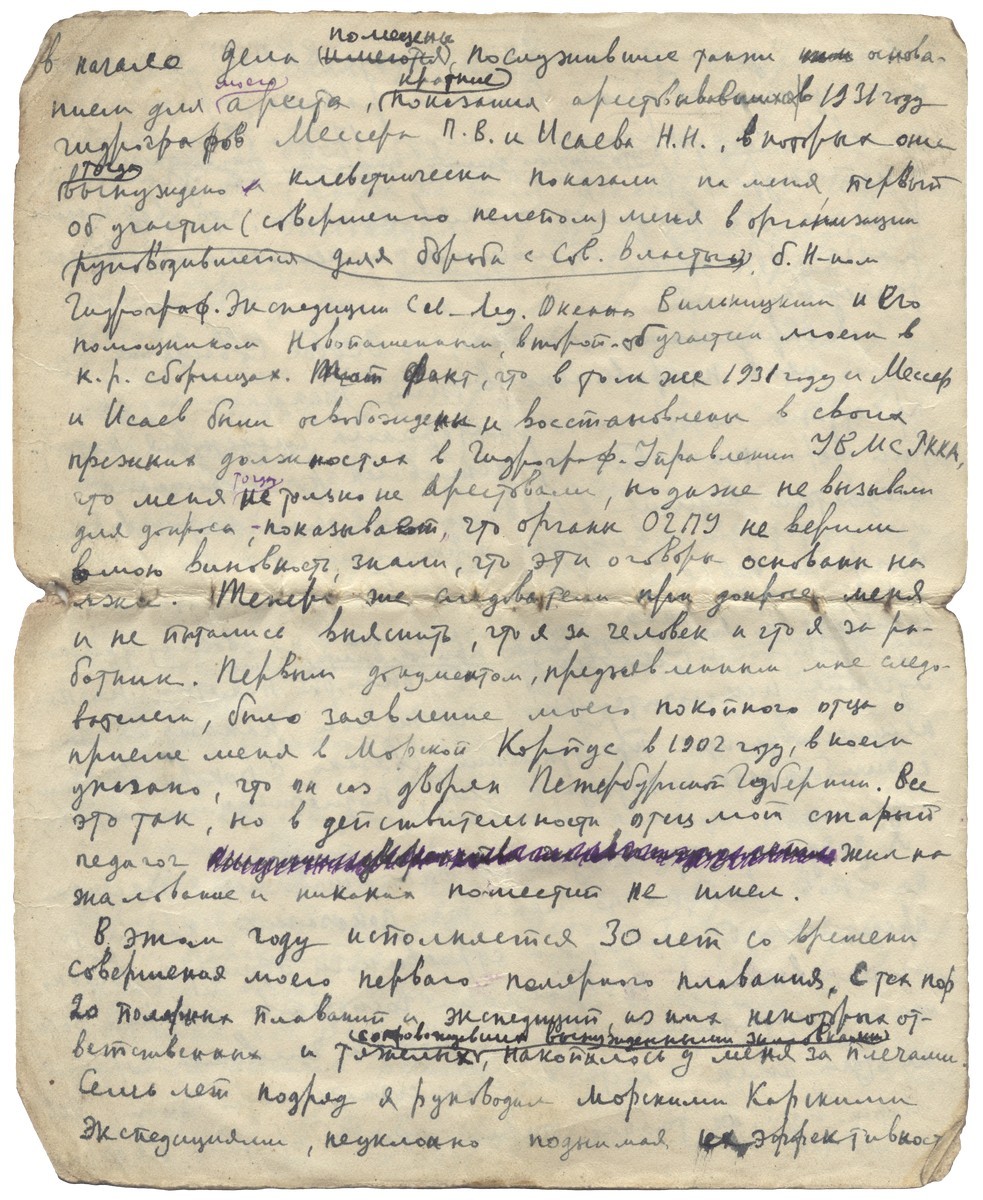 помещены
в начале дела (имеются), послужившие также основа-
моего краткие
нием для ареста, показания арестовывавшихся в 1931 году
гидрографов Мессера П.В. и Исаева Н.Н., в которых они
тогда
вынуждено и клеветнически показали на меня, первый
об участии (совершенно нелепом) меня в организации
руководившейся для борьбы с Сов. властью, б. Н-ком
Гидрограф. Экспедиции Сев. Лед. Океана Вилькицким и его
помощником Новопашенным, второй - об участии моем в
к.р. сборищах. Факт, что в том же 1931 году и Мессер
и Исаев были освобождены и восстановлены в своих
прежних должностях в Гидрограф. Управлении УВМС РККА,
тогда
что меня не только не арестовали, но даже не вызывали
для допроса, - показывает, что органы ОГПУ не верили
в мою виновность, знали, что эти оговоры основаны на
лжи. Теперь же следователи при допросе меня
и не пытались выяснить, что я за человек и что я за ра-
ботник. Первым документом, предъявленным мне следо-
вателем, было заявление моего покойного отца о
приеме меня в Морской Корпус в 1902 году, в коем
указано, что он из дворян Петербургской Губернии. Все
это так, но в действительности отец мой старый
педагог жил на
жалование и никаких поместий не имел.
В этом году исполняется 30 лет со времени
совершения моего первого полярного плавания. С тех пор
20 полярных плаваний и экспедиций из них некоторых от-
(сопровождавшихся вынужденными зимовками)
ветственных и тяжелых, накопилось у меня за плечами.
Семь лет подряд я руководил морскими Карскими
Экспедициями, неуклонно поднимая их эффективност